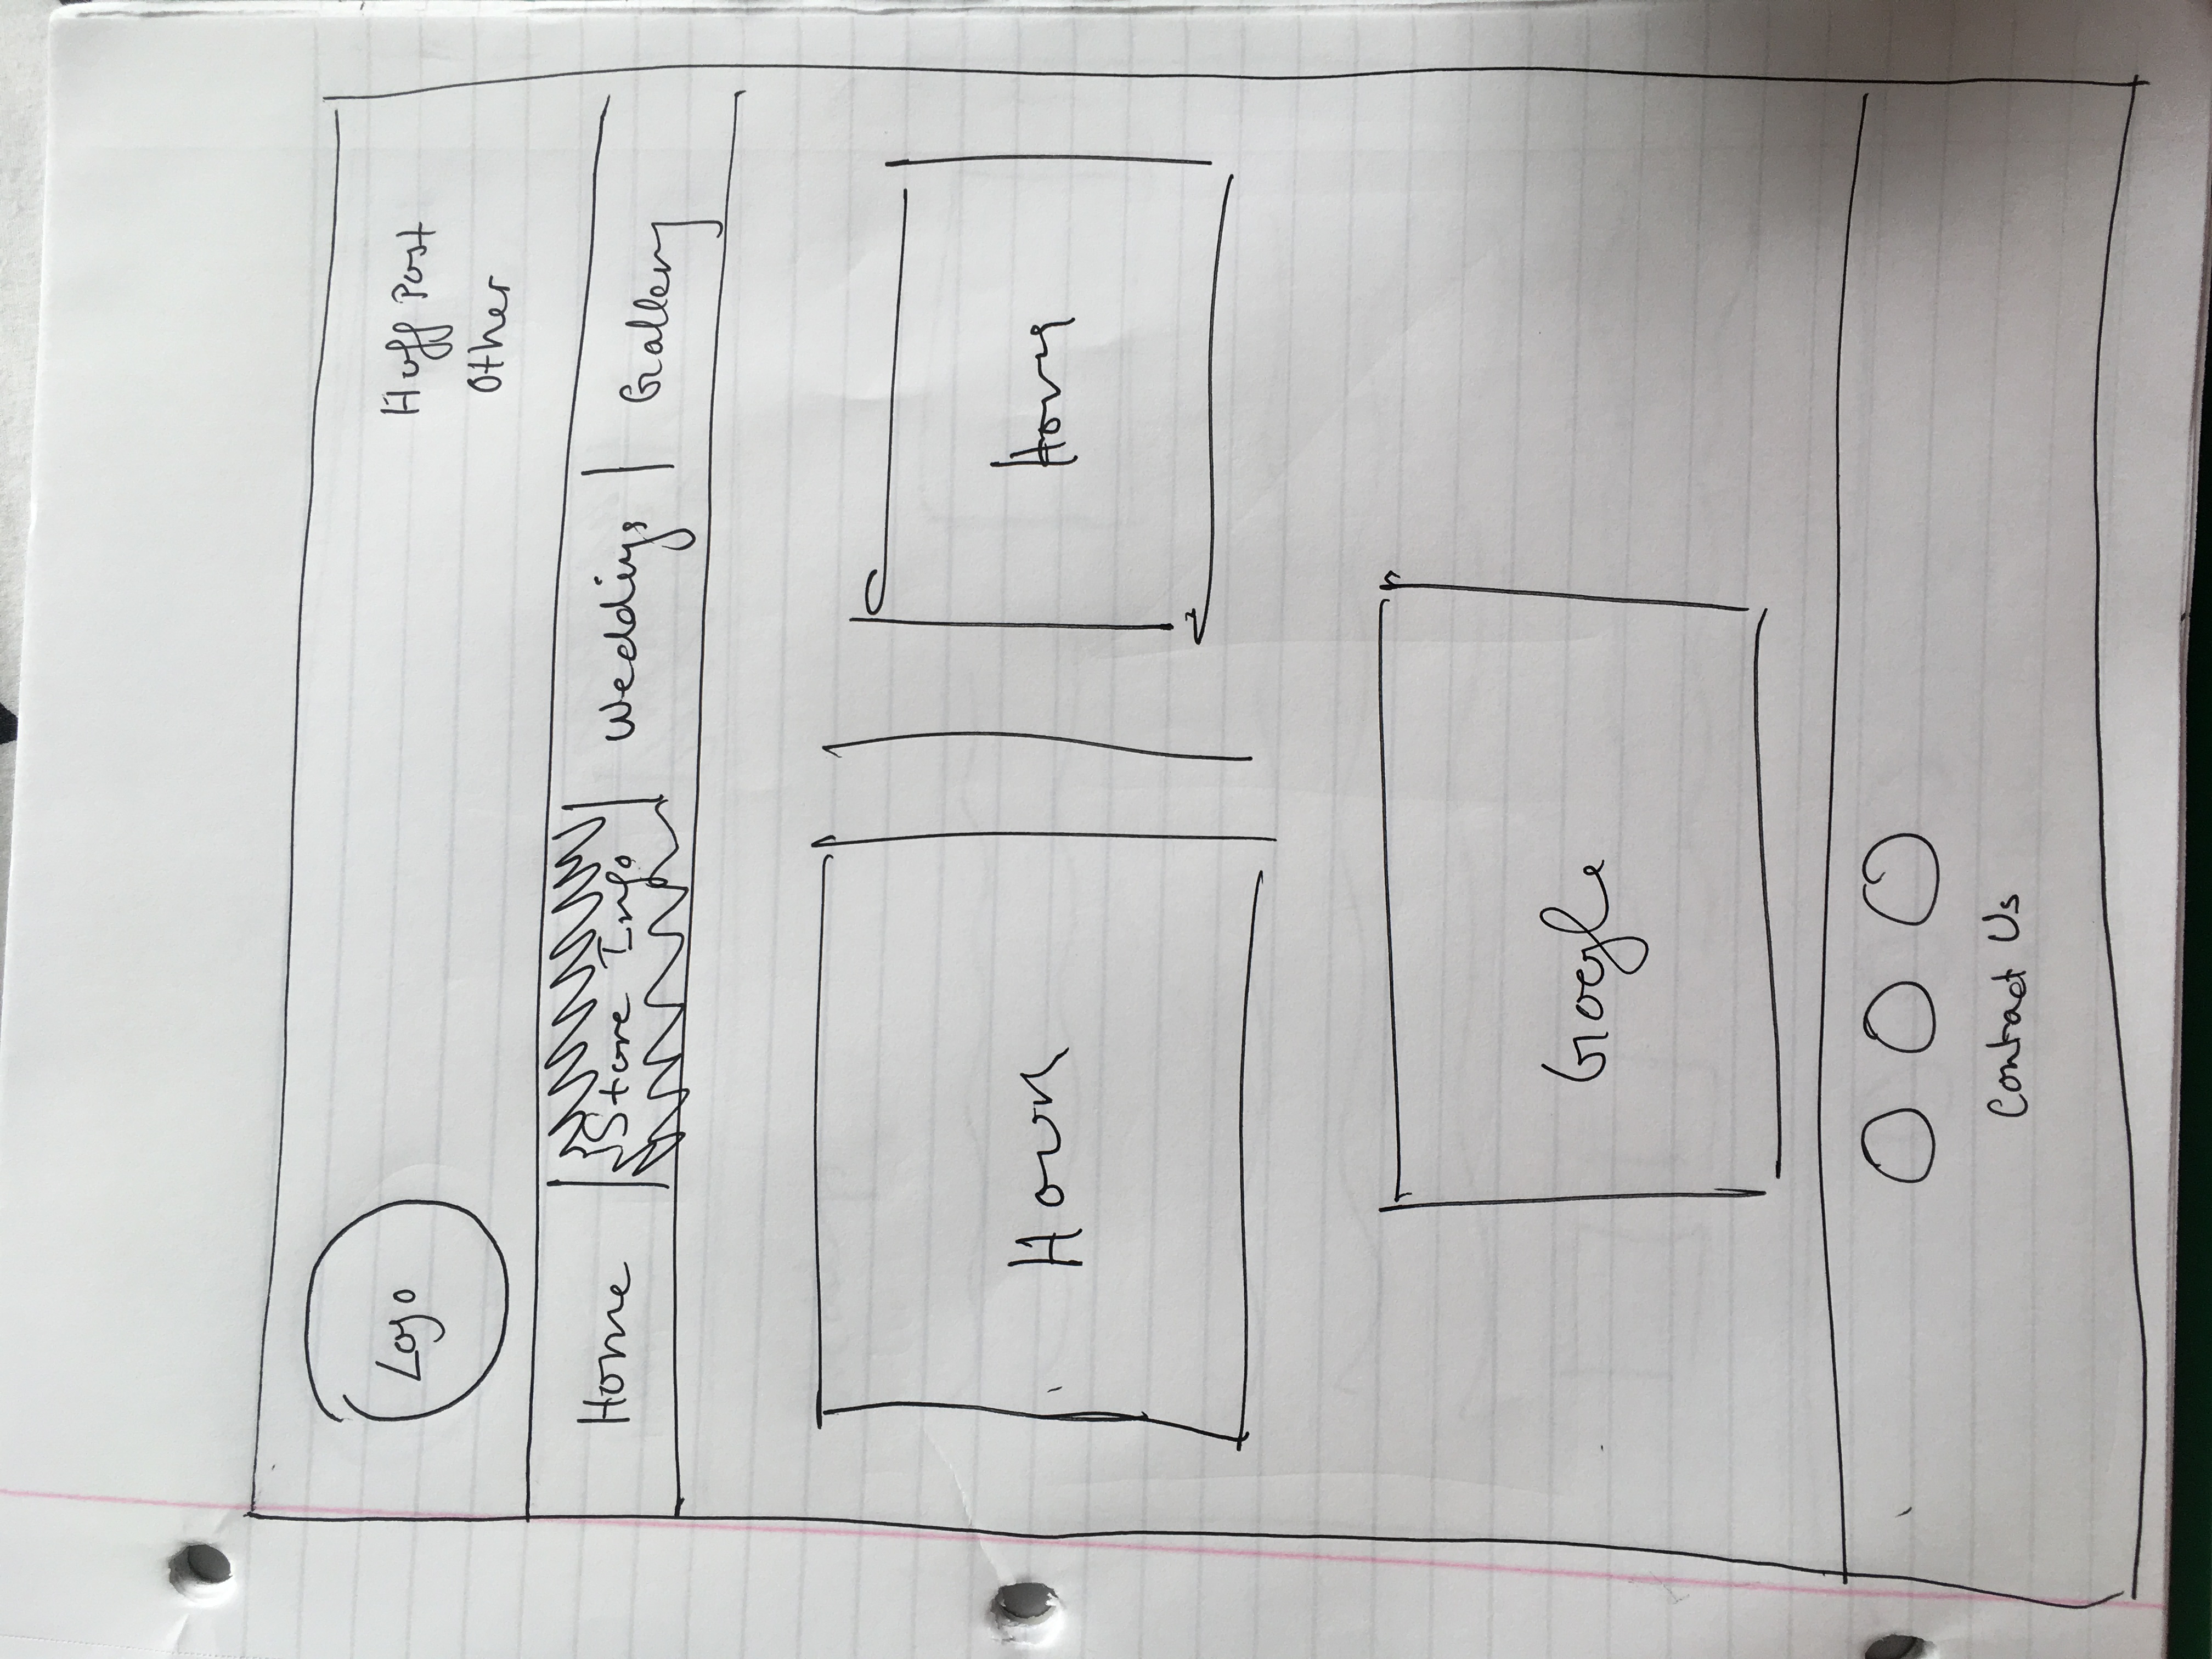 Logo
Huff Post
Other
Home Store Info Weddings Gallery
Hours
Hours
Google
Contact Us